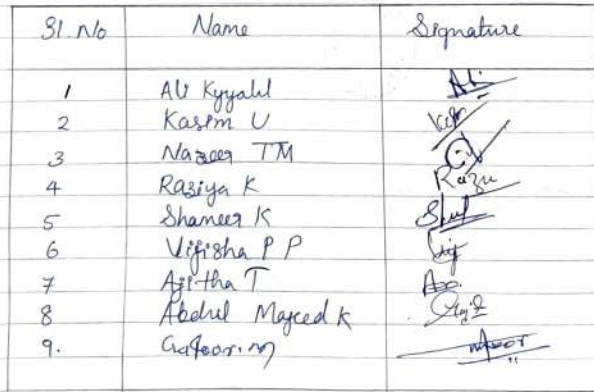 Sl No Name Signature
1 Ali Kyyalil
2 Kasim U
3 Nazeer TM
4 Raziya K Razu
5 Shameer K
6 Vijisha P P
7 Ajitha T
8 Abdul Majeed K
9. Gafoor. M